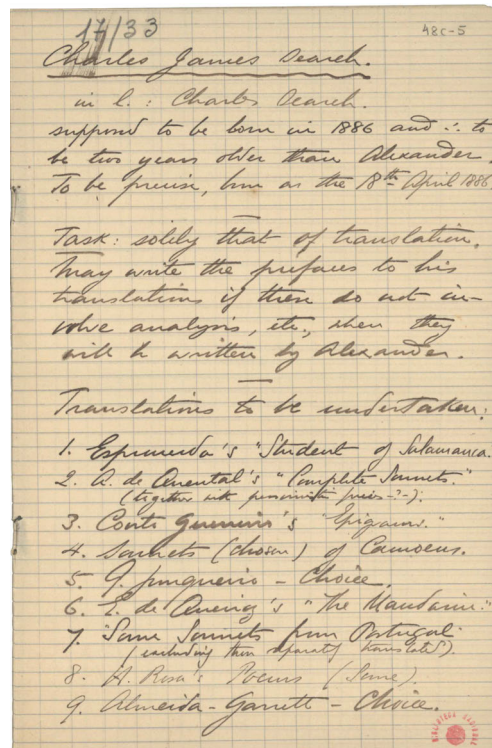 17/33
48C-5
Charles James Search.
in l.: Charles Search.
supposed to be born in 1886 and ∴ to
be two years older than Alexander.
To be precise, born on the 18th April 1886
Task: solely that of translation.
May write the prefaces to his
translations if these do not in-
volve analysis, etc., when they
will be written by Alexander.
Translations to be undertaken:
1. Espronceda's "Student of Salamanca.
2. A. de Quental's "Complete Sonnets."
(together with pessimistic -?-).
3. Conte 's "Epigrams."
4. Sonnets (chosen) of Camoens.
5. G. Junqueiro - Choice.
6. E. de Queiroz's "The Mandarin."
7. "Some Sonnets from Portugal"
(excluding those separately translated).
8. H. Rosa's Poems (Some).
9. Almeida-Garrett - Choice.